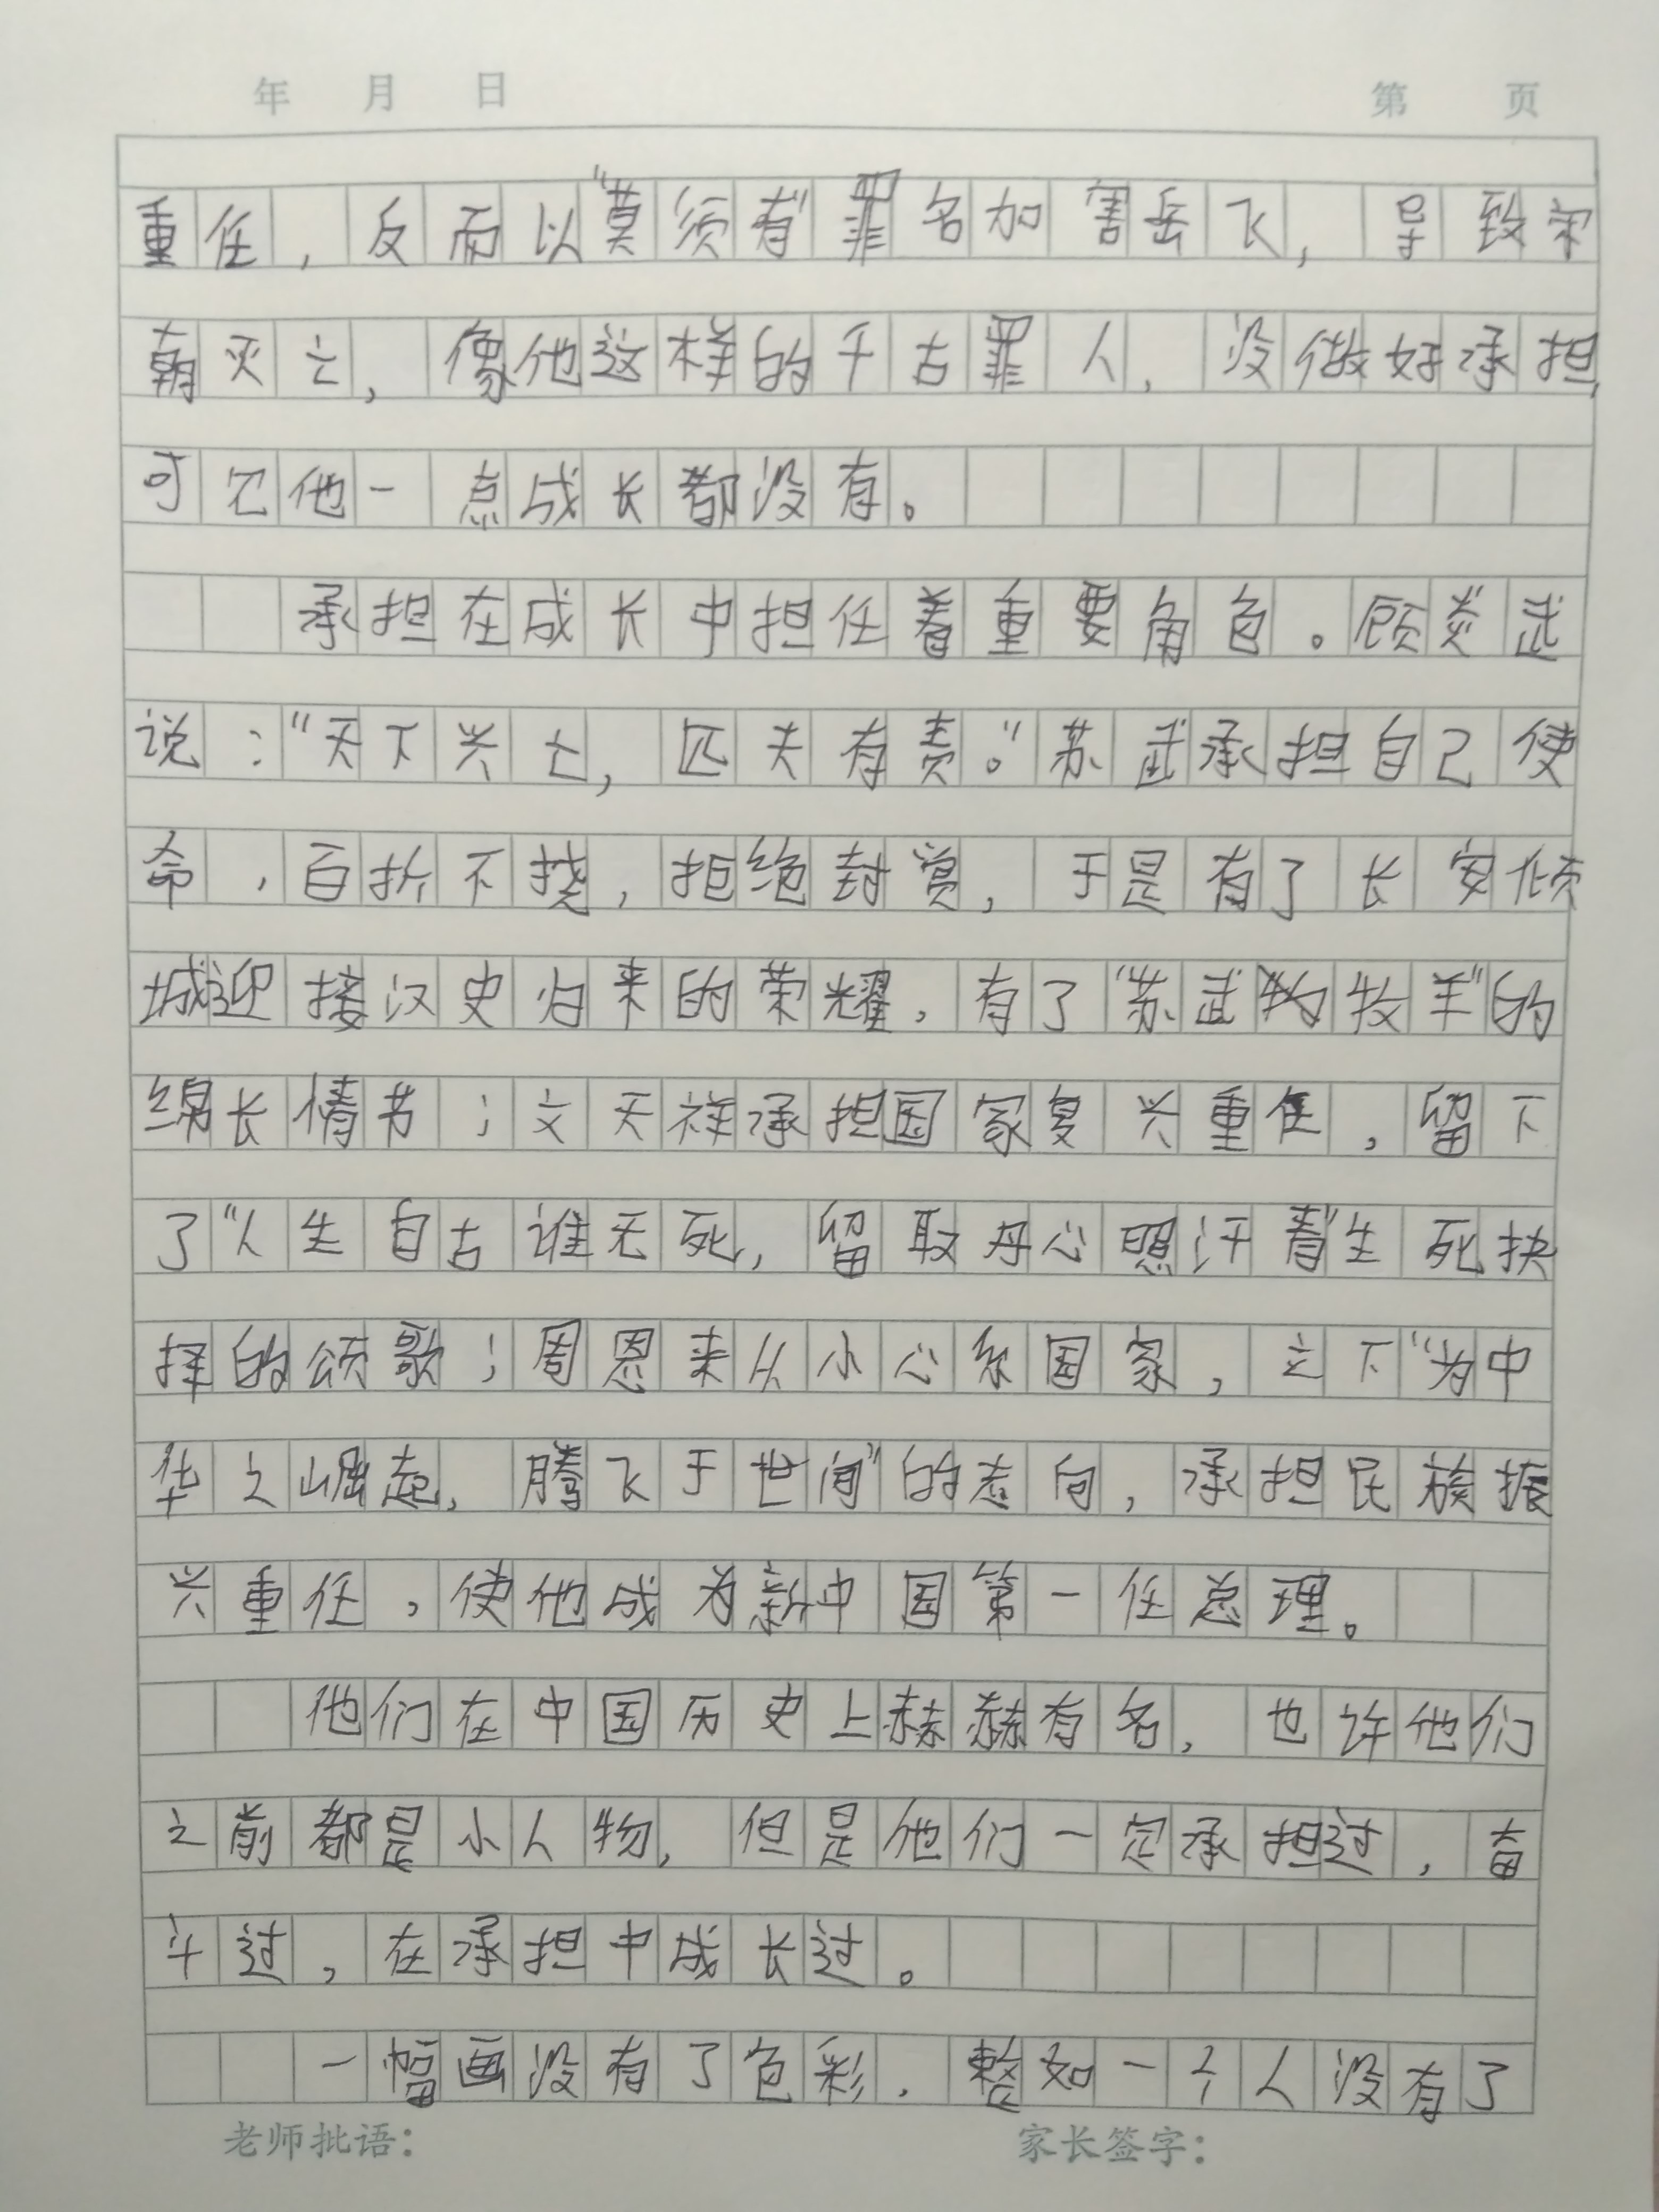 年 月 日 第 页
重任，反而以“莫须有”罪名加害岳飞，导致宋
朝灭亡，像他这样的千古罪人，没做好承担，
可他一点成长都没有。
承担在成长中担任着重要角色。顾炎武
说：“天下兴亡，匹夫有责。”苏武承担自己使
命，百折不挠，拒绝封赏，于是有了长安倾
城迎接汉史归来的荣耀，有了“苏武牧羊”的
绵长情节；文天祥承担国家复兴重任，留下
了“人生自古谁无死，留取丹心照汗青”生死抉
择的颂歌；周恩来从小心系国家，立下“为中
华之崛起，腾飞于世间”的志向，承担民族振
兴重任，使他成为新中国第一任总理。
他们在中国历史上赫赫有名，也许他们
之前都是小人物，但是他们一定承担过，奋
斗过，在承担中成长过。
一幅画没有了色彩，整如一个人没有了
老师批语： 家长签字：